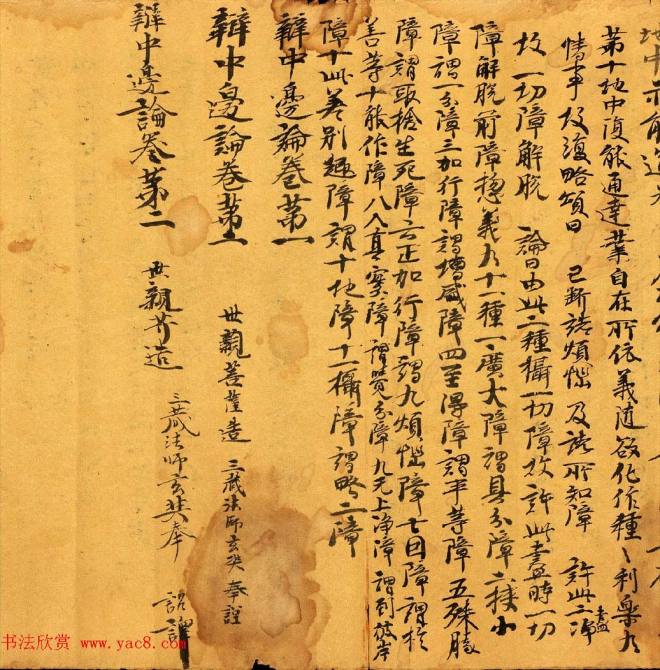 第十地中復能通達業自在所依義隨欲化作種〻利樂有
情事故復略頌曰 已斷諸煩惱 及諸所知障 許此二盡
故一切障解脫 論曰由此二種攝一切障故許此盡時一切
障解脫前障總義有十一種一廣大障謂具分障二狹小
障謂一分障三加行障謂增盛障四至得障謂平等障五殊勝
障謂取捨生死障六正加行障謂九煩惱障七因障謂於
善等十能作障八入真實障謂覺分障九无上淨障謂到彼岸
障十此差別趣障謂十地障十一攝障謂略二障
辯中邊論卷第一
辯中邊論卷第二 世親菩薩造 三藏法師玄奘奉
辯中邊論卷第二 世親𦬇造 三藏法師玄奘奉 詔譯
书法欣赏 www.yac8.com